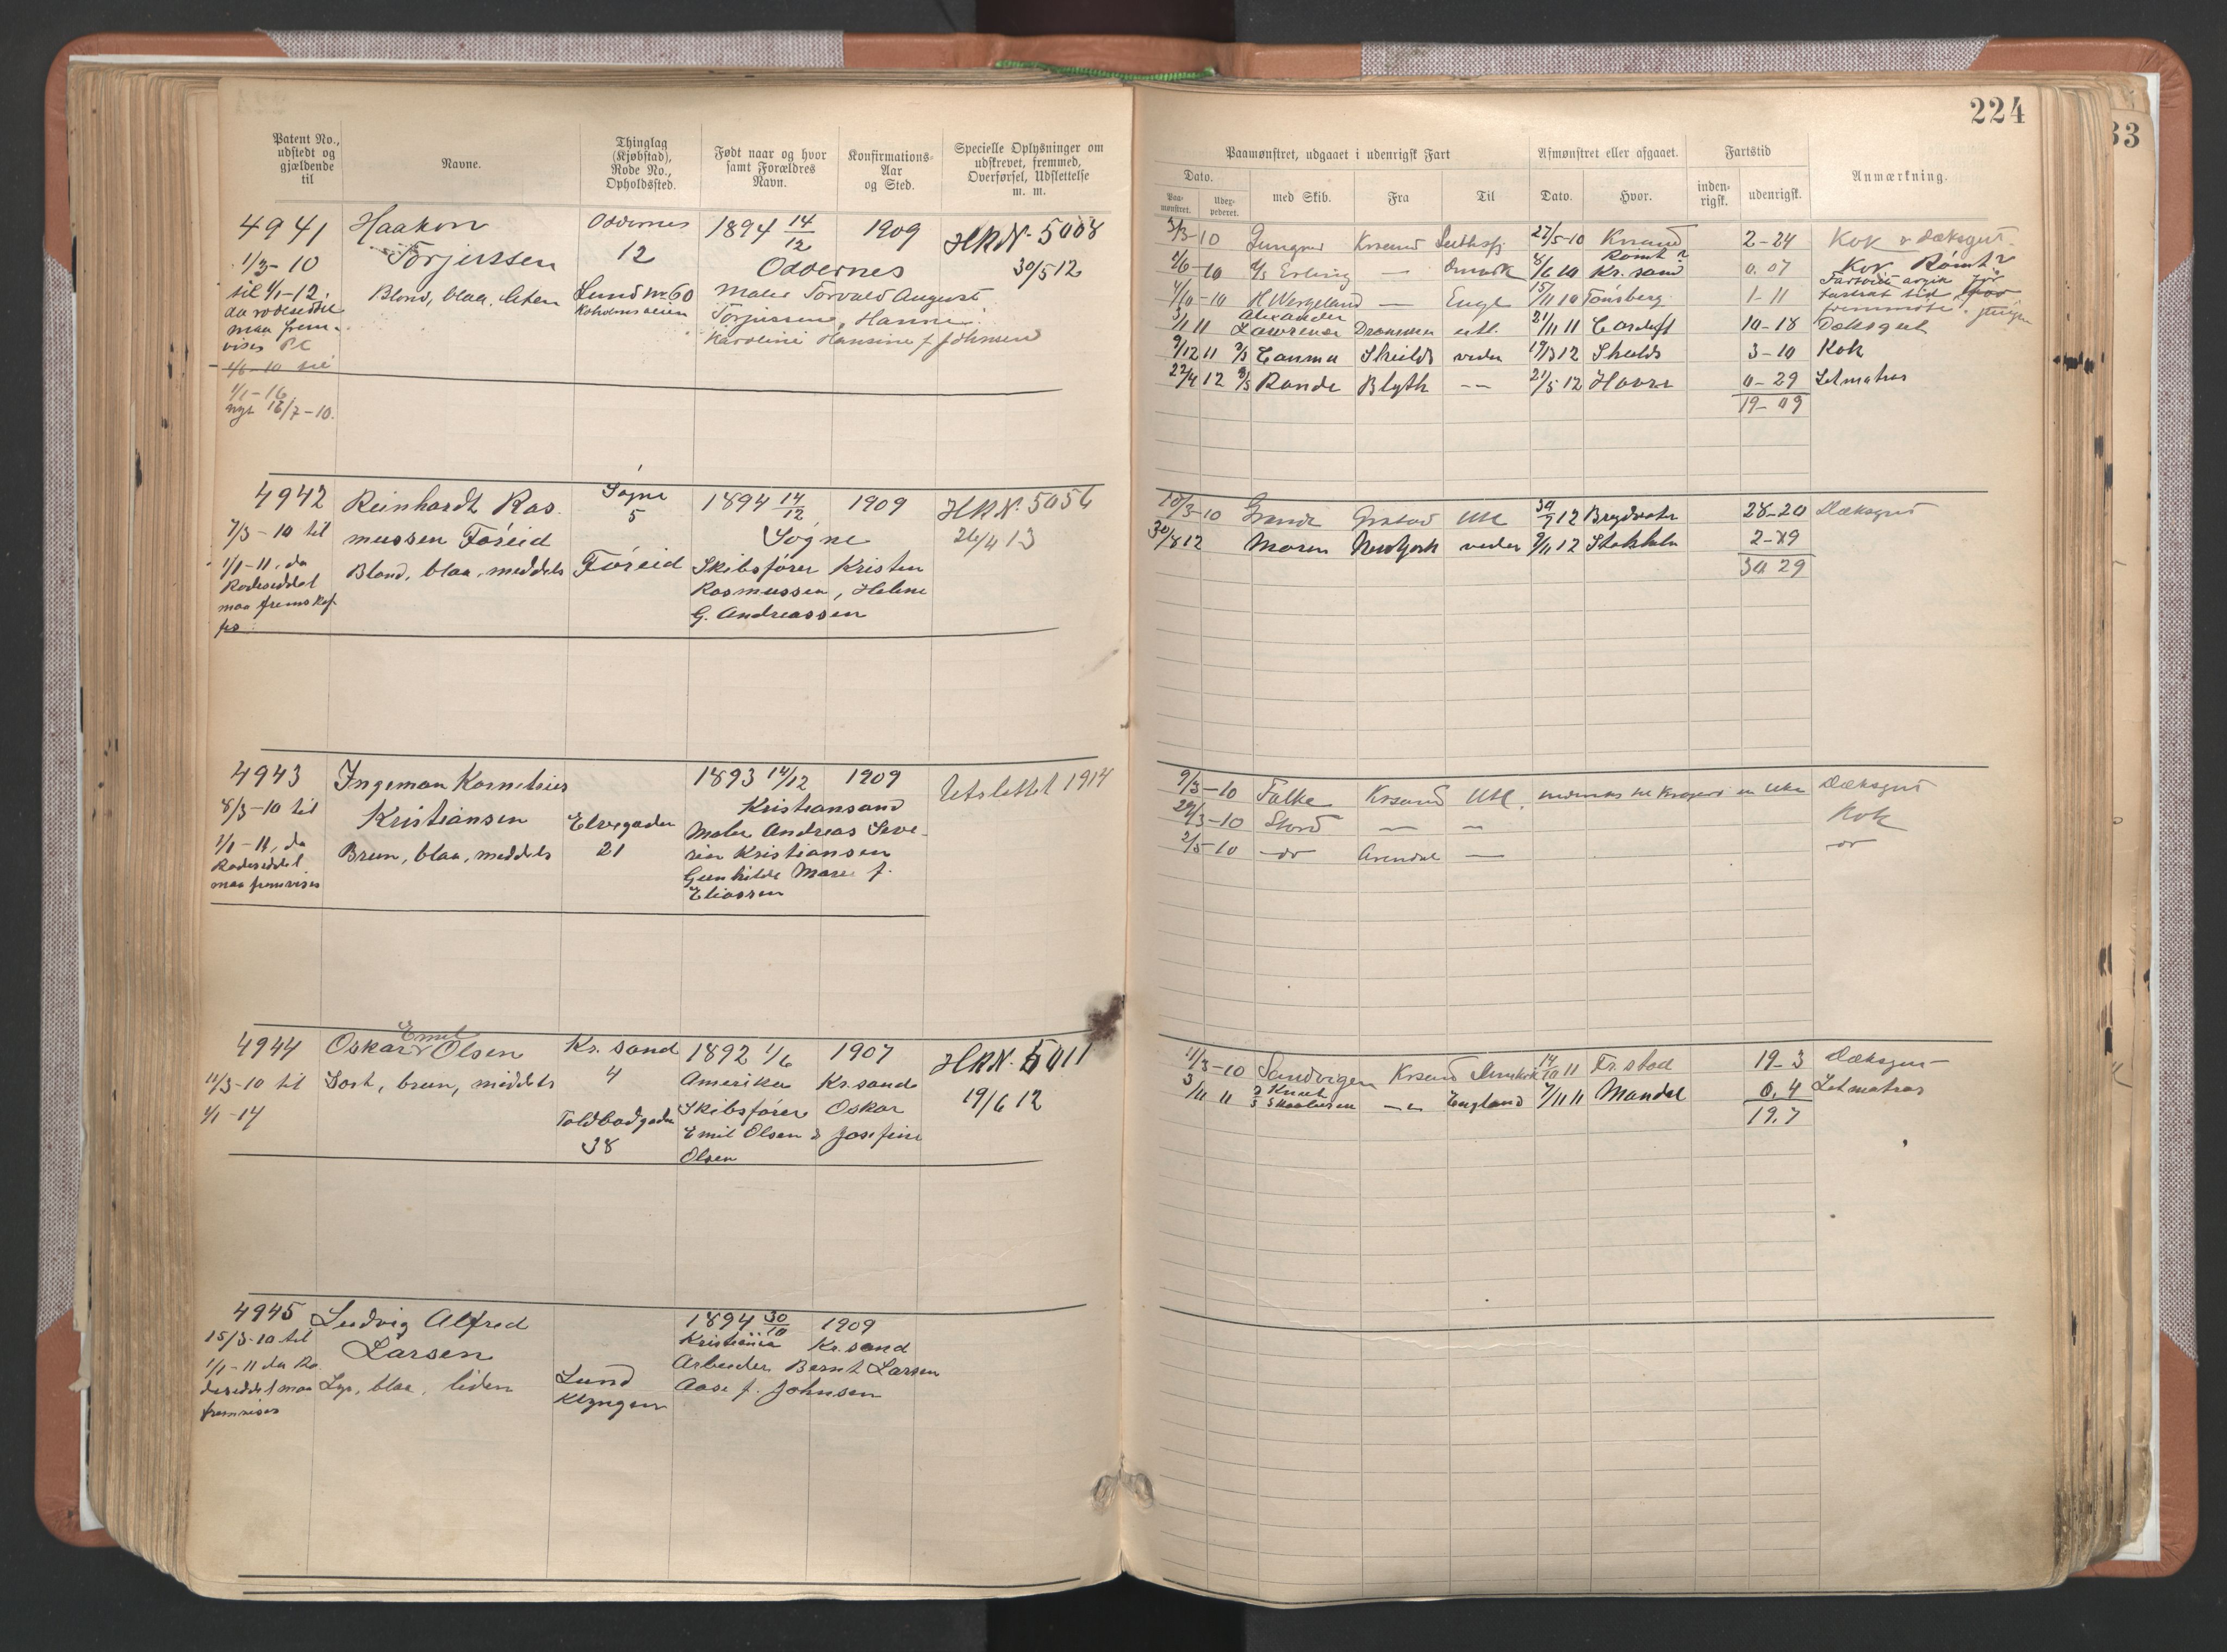 224
33
Patent No., udstedt og gjældende til
Navne.
Thinglag (Kjøbstad), Rode No., Opholdssted.
Født naar og hvor samt Forældres Navn.
Konfirmations-Aar og Sted.
Specielle Oplysninger om udskrevet, fremmed, Overførsel, Udslettelse m. m.
Paamønstret, udgaaet i udenrigsk Fart
Afmønstret eller afgaaet.
Fartstid
Anmærkning.
Dato.
Paa-mønstret.
Udex-pederet.
med Skib.
Fra
Til
Dato.
Hvor.
inden-rigsk.
udenrigsk.
4941 Haakon Oddernes 1894 14/12 1909 HRN. 5008
1/3-10 Torjussen 12 Oddernes 30/5 12
til 1/1-12, Blond, blaa, liten Lund No 60 Maler Torvald August
da rodeseddel Torjussen, Hanne
maa frem- Karoline Hansine f. Johnsen
vises
1/1-16
nyt 16/7-10.
3/3-10 Krsand 27/5-10 Krsand 2-24 Kok & Dæksgut
Rømt?
2/6-10 Erling — Dmark 8/6 10 Kr. sand 0.07 Kok Rømt?
4/10-10 H Wergeland — Engl 15/11 10 Tønsberg 1-11
Alexander
3/1 11 Lawrence Drammen utl. 21/11 11 Cardiff 10-18 Dæksgut
9/12 11 Emma Shields veder 19/3 12 Shields 3-10 Kok
22/4 12 Rande Blyth -- 21/5 12 Havre 0-29 Letmatros
19-09
4942 Reinhardt Ras Søgne 1894 14/12 1909 HRN. 5056
5
7/3-10 til mussen Føreid Søgne 26/4 13
1/1-11, da Blond, blaa, meddels Føreid Skibsfører Kristen
Rodeseddel Rasmussen, Helene
maa fremskaf- G. Andreassen
fes
10/3-10 Grande Grstad Utl 30/7 12 28-20 Dæksgut
30/8 12 Newyork veder 9/11 12 Stokholm 2-29
30 29
4943 Ingeman Kornelius 1893 14/12 1909 Utslettet 1914
8/3-10 til Kristiansen Elvegaden Kristiansand
1/1-11, da Brun, blaa, meddels 21 Maler Andreas Seve-
Rodeseddel rin Kristiansen
maa fremvises Gunhilde Marie f.
Eliassen
9/3-10 Falke Krsand Utl. Dæksgut
29/3-10 Stord — — Kok
2/5-10 -do- Arendal — -do-
4944 Oskar Emil Olsen Kr. sand 1892 1/6 1907 HRN. 5011
11/3-10 til Sort, brun, middels 4 Amerika Kr. sand 19/6 12
1/1-14 Toldbodgaden Skibsfører Oskar
38 Emil Olsen & Josefine
Olsen
11/3-10 Sandvigen Krsand 14/10 11 Fr. stad 19-3 Dæksgut
3/11 11 Knut Skaaluren -"- England 7/11 11 Mandal 0.4 Letmatros
19.7
4945 Ludvig Alfred 1894 30/10 1909
15/3-10 til Larsen Kristiania Kr. sand
1/1-11 da Ro- Lund Arbeider Bernt Larsen
deseddel maa Lys, blaa, liden Klyngen Aase f. Johnsen
fremvises